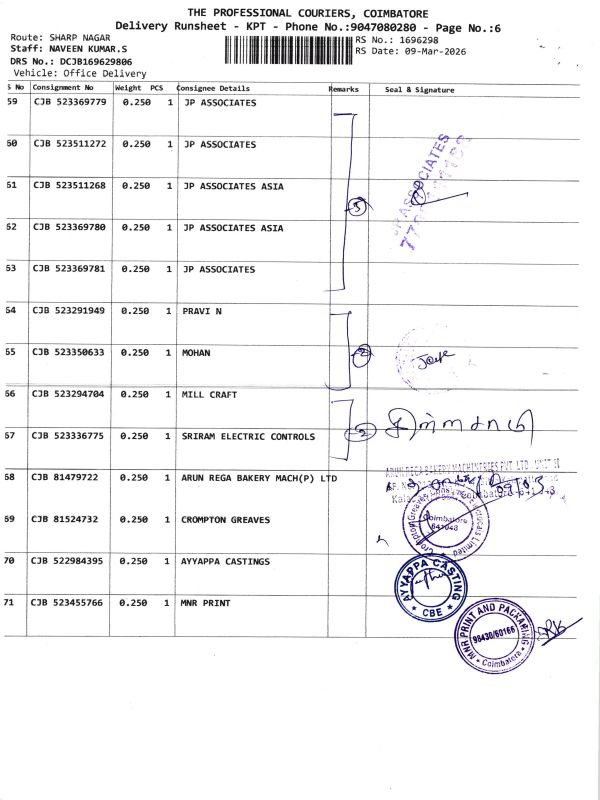 THE PROFESSIONAL COURIERS, COIMBATORE
Delivery Runsheet - KPT - Phone No.:9047080280 - Page No.:6
Route: SHARP NAGAR
Staff: NAVEEN KUMAR.S
DRS No.: DCJB169629806
Vehicle: Office Delivery
RS No.: 1696298
RS Date: 09-Mar-2026
S No Consignment No Weight PCS Consignee Details Remarks Seal & Signature
59 CJB 523369779 0.250 1 JP ASSOCIATES
60 CJB 523511272 0.250 1 JP ASSOCIATES
61 CJB 523511268 0.250 1 JP ASSOCIATES ASIA
62 CJB 523369780 0.250 1 JP ASSOCIATES ASIA
63 CJB 523369781 0.250 1 JP ASSOCIATES
5
JP ASSOCIATES
64 CJB 523291949 0.250 1 PRAVI N
65 CJB 523350633 0.250 1 MOHAN
2
66 CJB 523294704 0.250 1 MILL CRAFT
67 CJB 523336775 0.250 1 SRIRAM ELECTRIC CONTROLS
2
68 CJB 81479722 0.250 1 ARUN REGA BAKERY MACH(P) LTD
ARUN REGA BAKERY MACHINERIES PVT LTD
Coimbatore
09/03
69 CJB 81524732 0.250 1 CROMPTON GREAVES
Crompton Greaves Limited
Coimbatore
641048
70 CJB 522984395 0.250 1 AYYAPPA CASTINGS
AYYAPPA CASTING
CBE
71 CJB 523455766 0.250 1 MNR PRINT
MNR PRINT AND PACKAGING
98430/60166
Coimbatore